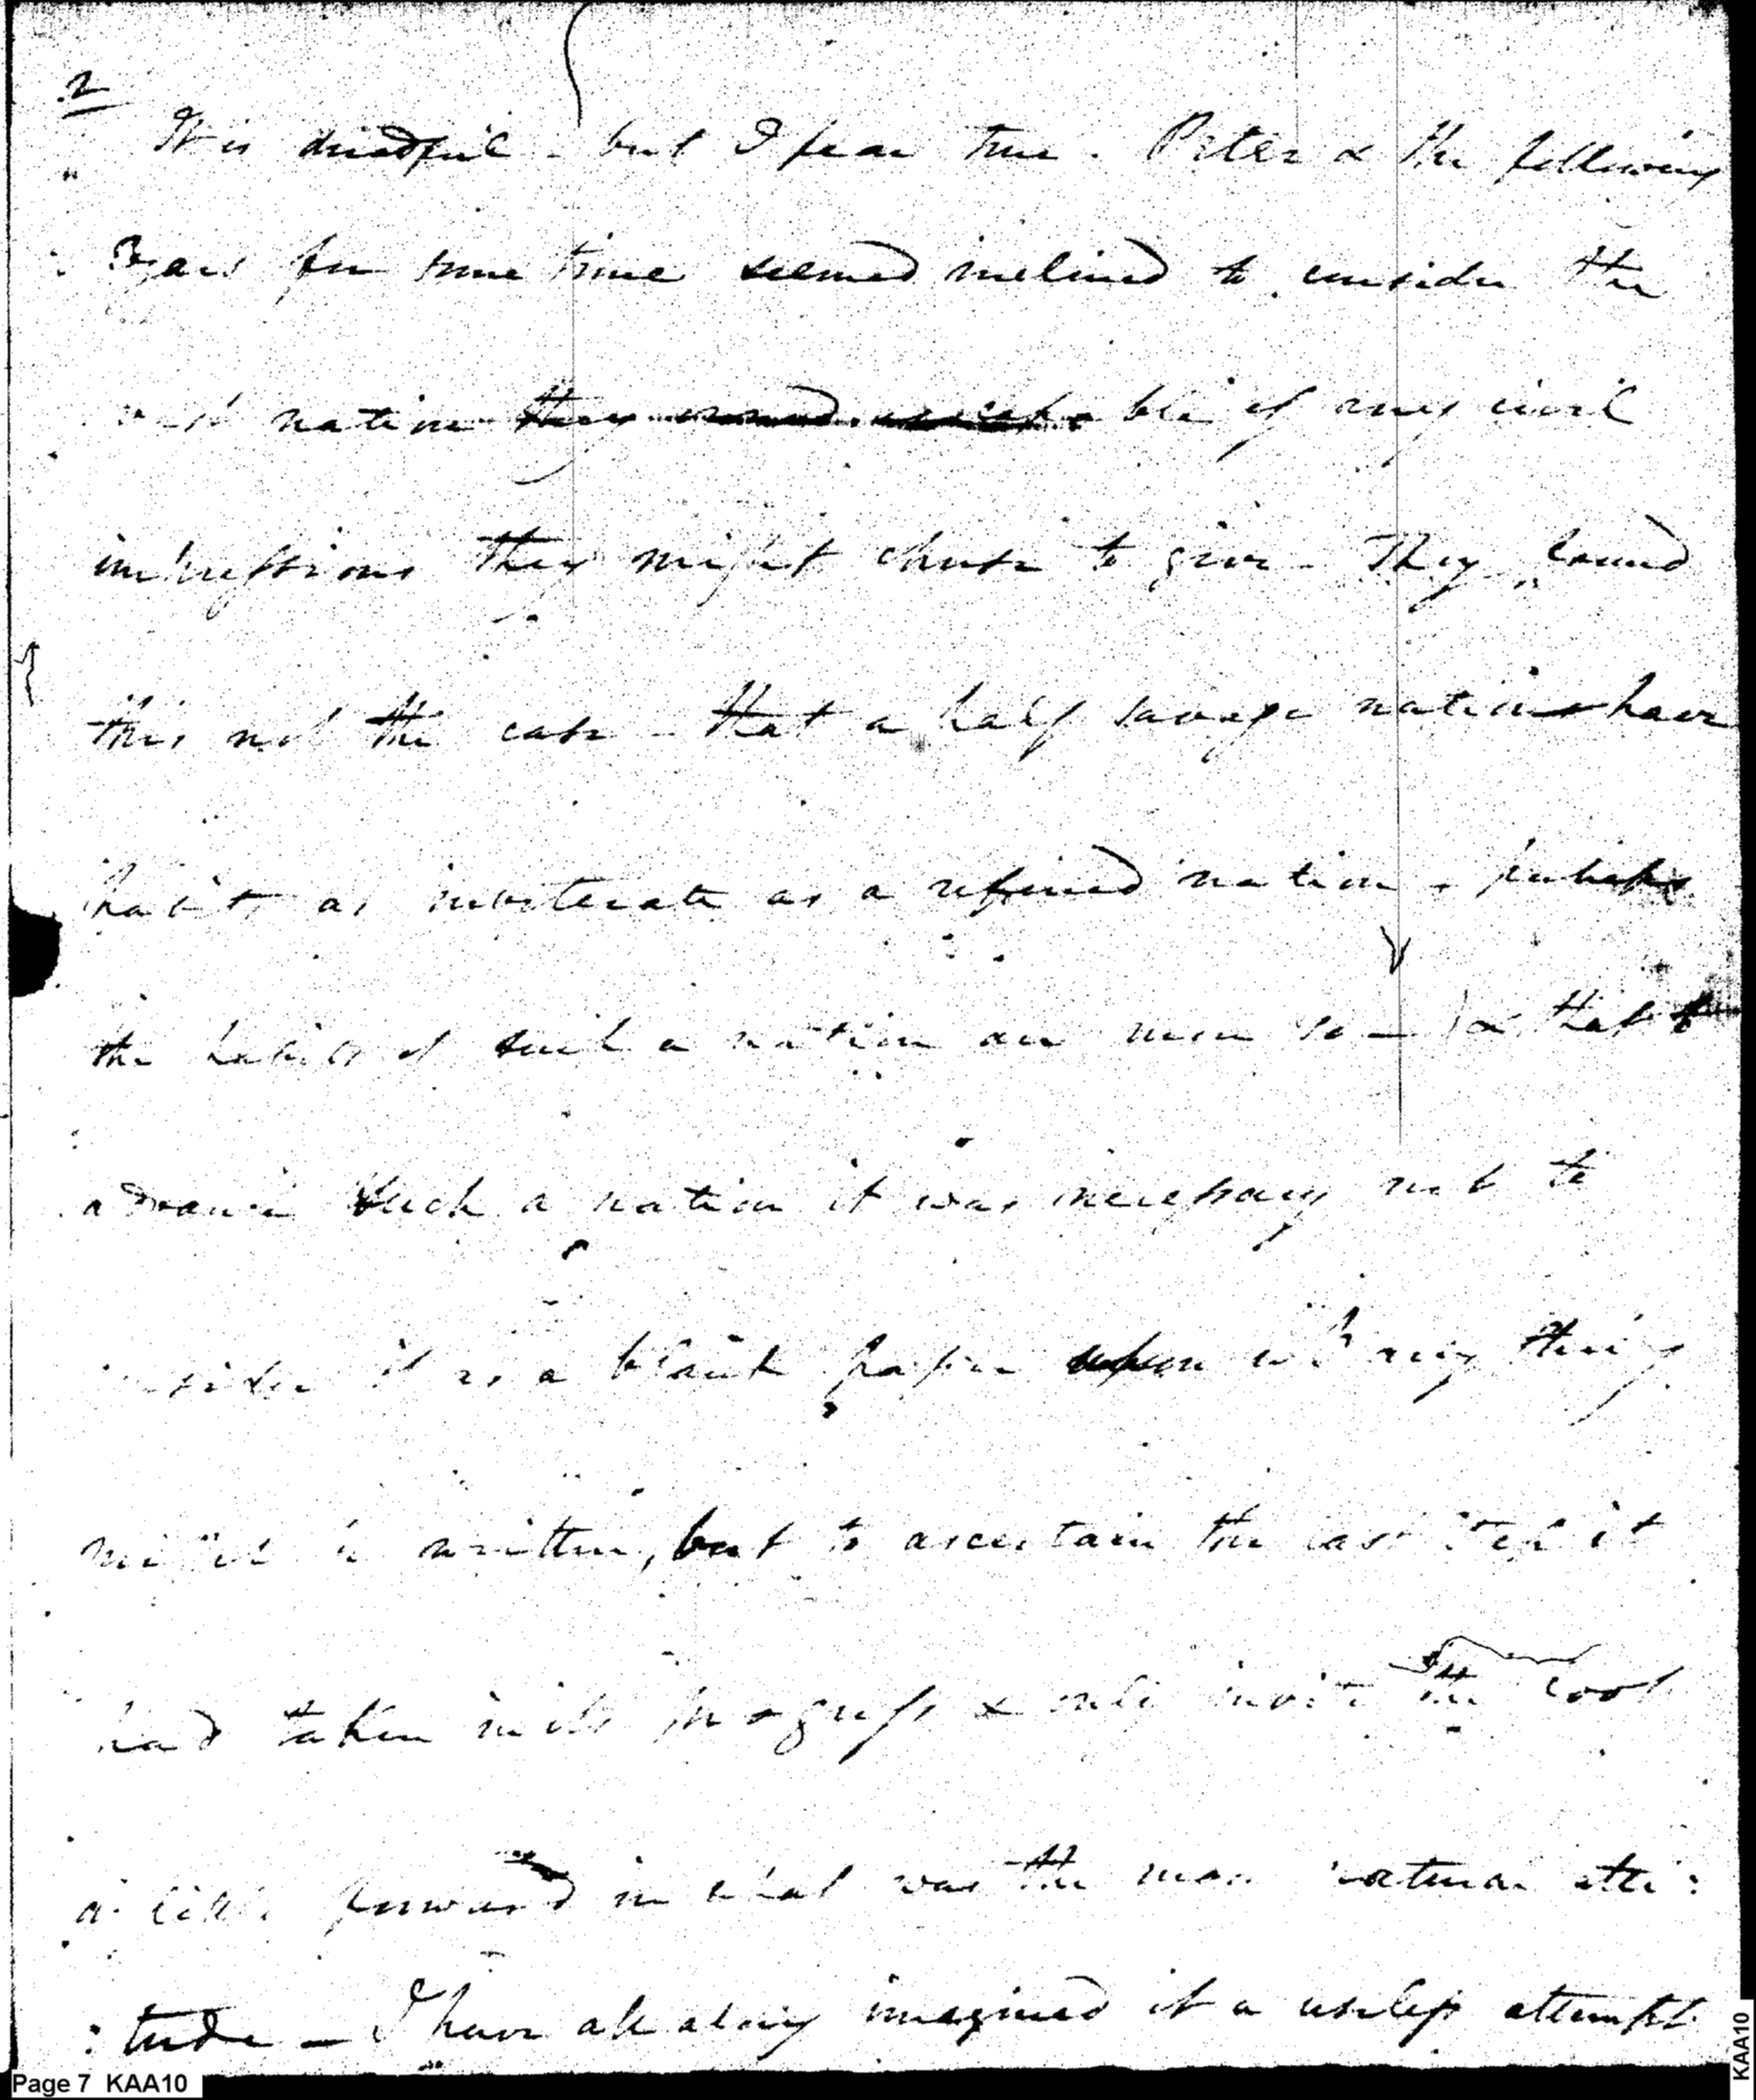 2
It is dreadful - but I fear true. Peter & the following
for some time seemed inclined to consider the
nation they ble of any civil
impressions they might chuse to give - They found
this not the case - that a half savage nation have
habits as inveterate as a refined nation - perhaps
the habits of such a nation are more so - & that to
advance such a nation it was necessary not to
consider it as a blank paper upon wh any thing
might be written, but to ascertain the last step it
had taken in its progress & only invite the foot
a little forward in what was the more natural atti:
:tude - I have all along imagined it a useless attempt
Page 7 KAA10
KAA10